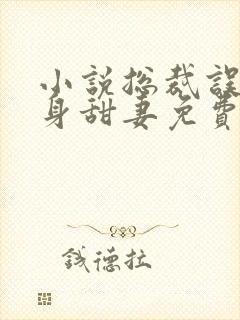 小說總裁誤
身甜妻免費
錢德拉